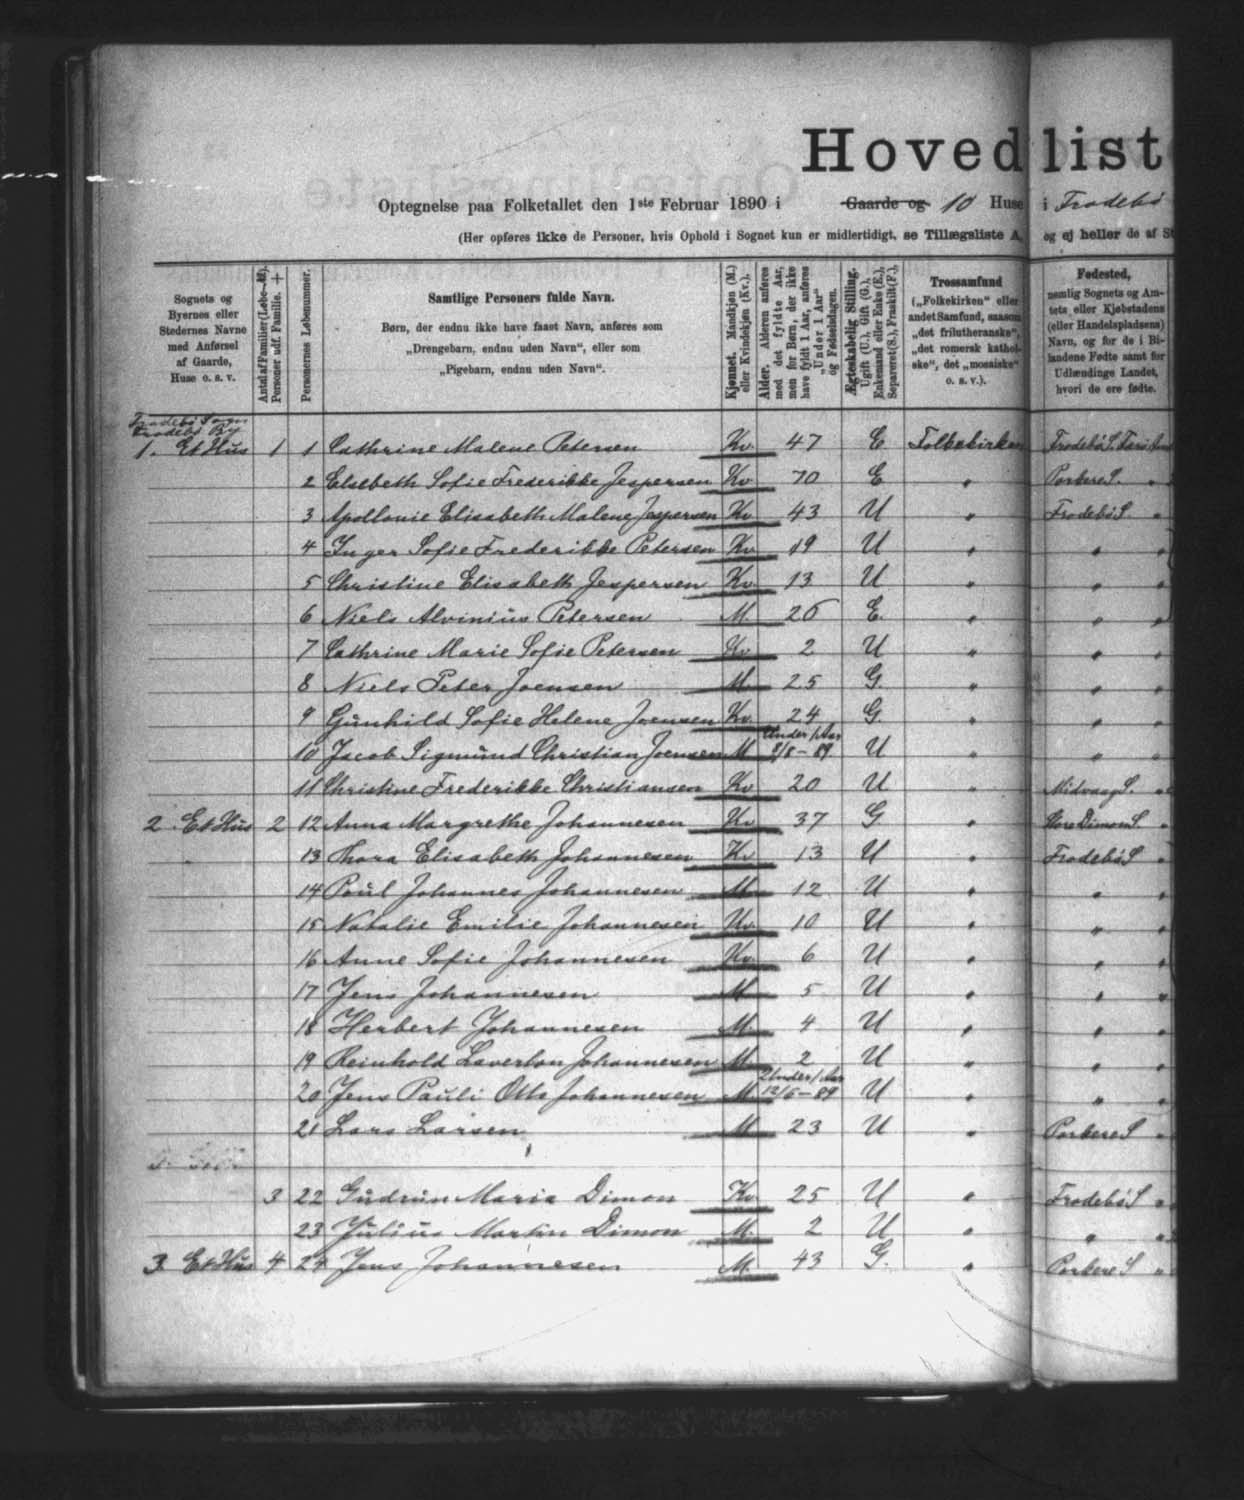 Hovedlist
Optegnelse paa Folketallet den 1ste Februar 1890 i Gaarde og 10 Huse i Frodebö
(Her opføres ikke de Personer, hvis Ophold i Sognet kun er midlertidigt, se Tillægsliste A, og ej heller de af St
Sognets og Byernes eller Stedernes Navne med Anførsel af Gaarde, Huse o. s. v.
Antal af Familier (Løbe-№). Personer udf. Familie. +
Personernes Løbenummer.
Samtlige Personers fulde Navn.
Børn, der endnu ikke have faaet Navn, anføres som
„Drengebarn, endnu uden Navn", eller som
„Pigebarn, endnu uden Navn".
Kjønnet. Mandkjøn (M.) eller Kvindekjøn (Kv.).
Alder. Alderen anføres med det fyldte Aar, men for Børn, der ikke have fyldt 1 Aar, anføres „Under 1 Aar" og Fødselsdagen.
Ægteskabelig Stilling. Ugift (U.), Gift (G.), Enkemand eller Enke (E.), Separeret (S.), Fraskilt (F.),
Trossamfund („Folkekirken" eller andet Samfund, saasom „det frilutheranske", „det romersk katholske", det „mosaiske" o. s. v.).
Fødested, nemlig Sognets og Amtets eller Kjøbstadens (eller Handelspladsens) Navn, og for de i Bilandene Fødte samt for Udlændinge Landet, hvori de ere fødte.
Frodebö Sogn
Frodebö By
1. Et Hus 1 1 Cathrine Malene Petersen Kv. 47 E Folkekirken Frodebö S. Færö Amt
2 Elsebeth Sofie Frederikke Jespersen Kv. 70 E " Porkere S. "
3 Apollonie Elisabeth Malene Jespersen Kv. 43 U " Frodebö S "
4 Inger Sofie Frederikke Petersen Kv. 19 U " "
5 Christine Elisabeth Jespersen Kv. 13 U " " "
6 Niels Alvinius Petersen M. 26 E. " " "
7 Cathrine Marie Sofie Petersen Kv. 2 U " " "
8 Niels Peter Joensen M. 25 G. " " "
9 Gunhild Sofie Helene Joensen Kv. 24 G. " " "
10 Jacob Sigmund Christian Joensen M Under 1 Aar 8/8 – 89. U " " "
11 Christine Frederikke Christiansen Kv 20 U " Midvaag S. "
2. Et Hus 2 12 Anna Margrethe Johannesen Kv. 37 G " Store Dimon S. "
13 Thora Elisabeth Johannesen Kv 13 U " Frodebö S "
14 Poul Johannes Johannesen M 12 U " " "
15 Natalie Emilie Johannesen Kv. 10 U " " "
16 Anne Sofie Johannesen Kv. 6 U " " "
17 Jens Johannesen M 5 U " " "
18 Herbert Johannesen M. 4 U " " "
19 Reinhold Johannesen M. 2 U " " "
20 Jens Pauli Otto Johannesen M. Under 1 Aar 12/6 – 89 U " " "
21 Lars Larsen M 23 U " Porkere S "
3 22 Gudrun Maria Dimon Kv 25 U " Frodebö S "
23 Julius Martin Dimon M. 2 U " " "
3. Et Hus 4 24 Jens Johannesen M. 43 G. " Porkere S "